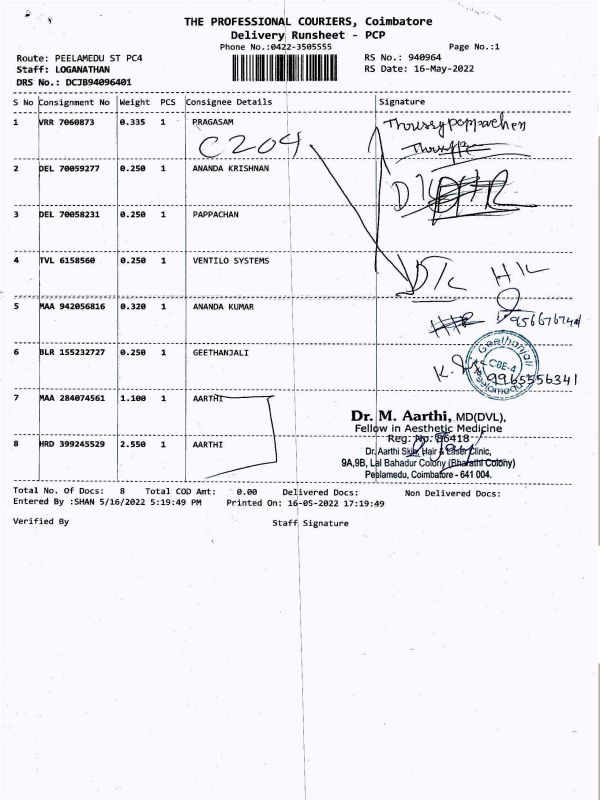 THE PROFESSIONAL COURIERS, Coimbatore
Delivery Runsheet - PCP
Phone No.:0422-3505555
Page No.:1
Route: PEELAMEDU ST PC4
RS No.: 940964
Staff: LOGANATHAN
RS Date: 16-May-2022
DRS No.: DCJB94096401
S No Consignment No Weight PCS Consignee Details Signature
1 VRR 7060873 0.335 1 PRAGASAM
C204
2 DEL 70059277 0.250 1 ANANDA KRISHNAN
3 DEL 70058231 0.250 1 PAPPACHAN
4 TVL 6158560 0.250 1 VENTILO SYSTEMS
D/L H/L
5 MAA 942056816 0.320 1 ANANDA KUMAR
6 BLR 155232727 0.250 1 GEETHANJALI
Geethanjali
CBE-4
9965556341
7 MAA 284074561 1.100 1 AARTHI
Dr. M. Aarthi, MD(DVL),
Fellow in Aesthetic Medicine
Reg. No. 86418
8 HRD 399245529 2.550 1 AARTHI
Dr. Aarthi Skin, Hair & Laser Clinic,
9A,9B, Lal Bahadur Colony (Bharathi Colony)
Peelamedu, Coimbatore - 641 004.
Total No. Of Docs: 8 Total COD Amt: 0.00 Delivered Docs: Non Delivered Docs:
Entered By :SHAN 5/16/2022 5:19:49 PM Printed On: 16-05-2022 17:19:49
Verified By Staff Signature